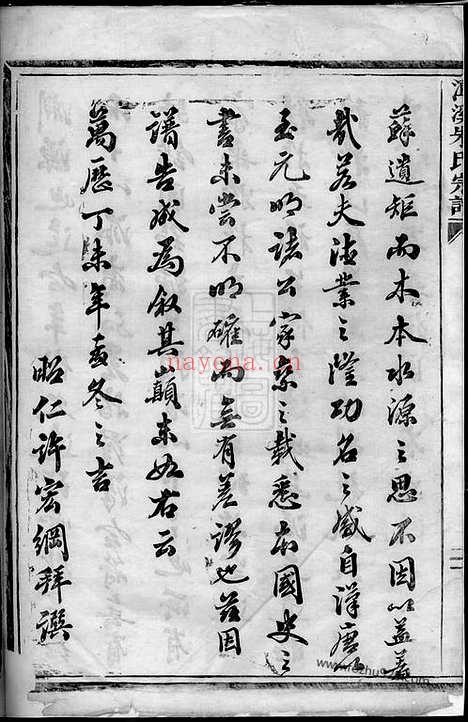 蘇遺矩而木本水源之思不因以益着
哉若夫德業之隆功名之盛自漢唐以
至元明諸公家乘之載悉本國史之
書未嘗不明確而無有差謬也茲因
譜告成為叙其巔末如右云
萬歷丁未年孟冬之吉
昭仁許宏綱拜譔
吳氏宗譜
nayona.cn